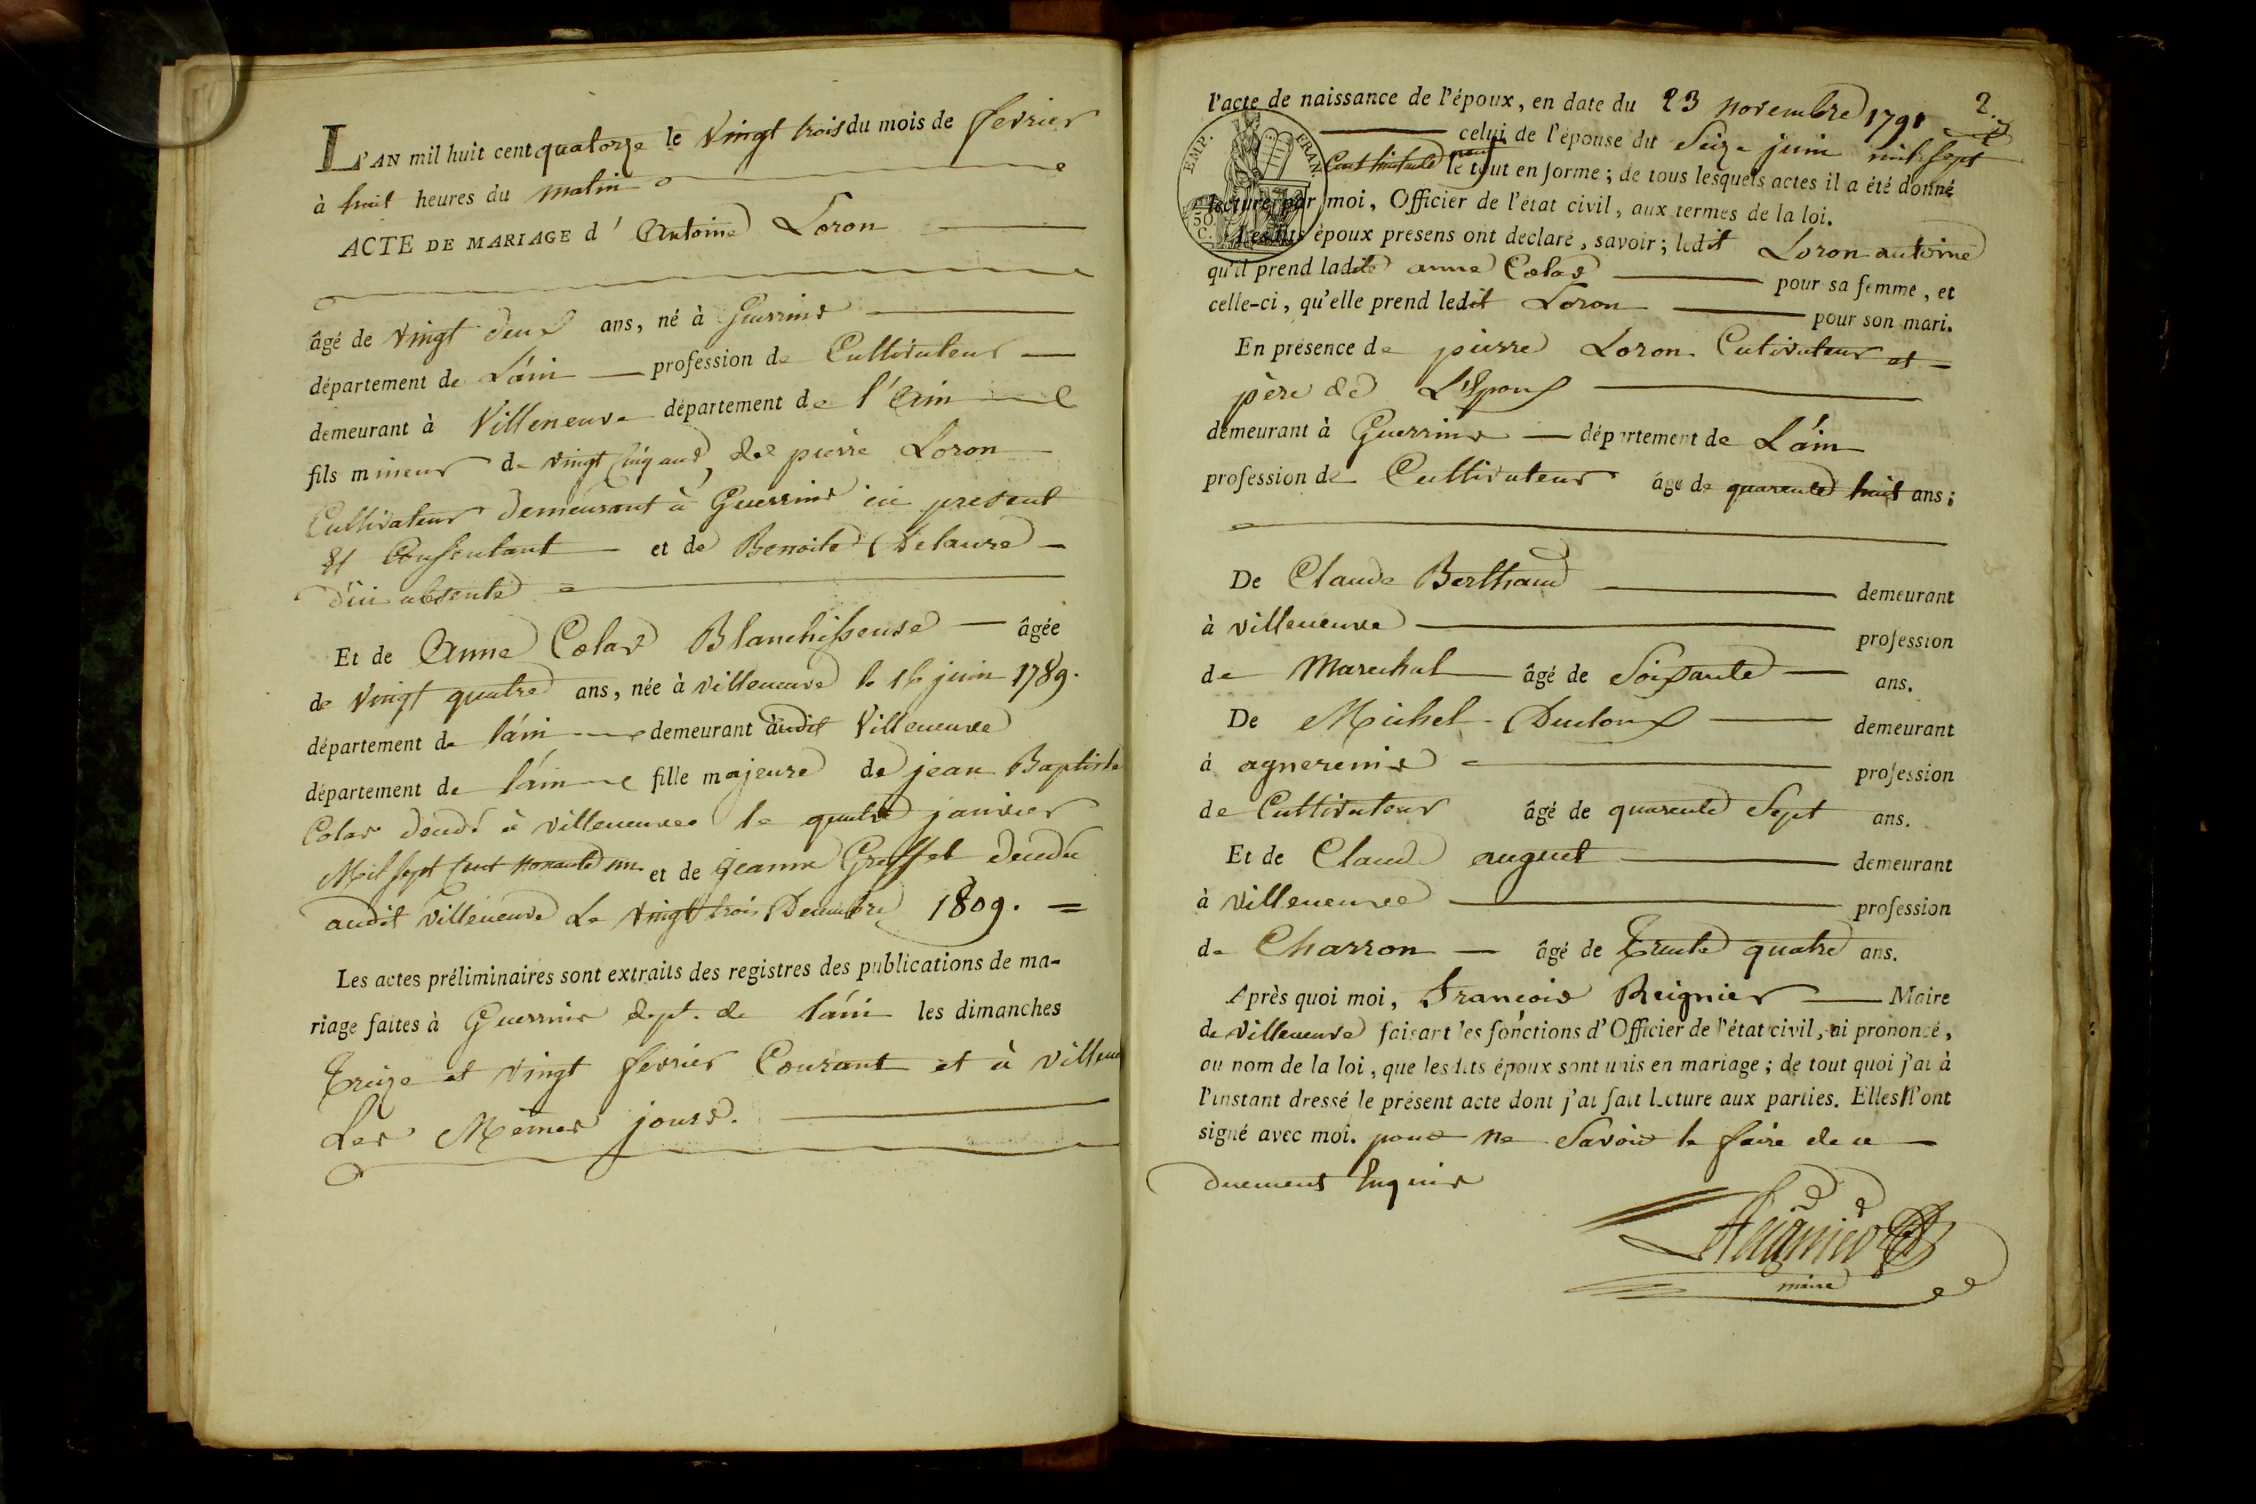 L'AN mil huit cent quatorze le vingt trois du mois de fevrier
à huit heures du matin
ACTE DE MARIAGE d' Antoine Loron
âgé de vingt deux ans, né à Guerrins
département de L'ain profession de Cultivateur
demeurant à Villeneuve département de l'Ain
fils mineur de vingt cinq ans, de pierre Loron
Cultivateur demeurant à Guerrins ici present
et Consentant et de Benoite Delaure
d'ici absente
Et de Anne Colas Blanchisseuse âgée
de vingt quatre ans, née à villeneuve le 16 juin 1789.
département de l'ain demeurant audit Villeneuve
département de l'ain fille majeure de jean Baptiste
Colas décédé à villeneuve le quatre janvier
Mil sept cent nonante un et de jeanne Greffet decedée
audit villeneuve Le vingt trois Decembre 1809.
Les actes préliminaires sont extraits des registres des publications de ma-
riage faites à Guerrins dept. de l'ain les dimanches
Treize et vingt fevrier Courant et à villeneu
Les Mêmes jours.
2.
l'acte de naissance de l'époux, en date du 23 novembre 1791
celui de l'épouse du Seize juin mil sept
Cent huitante neuf le tout en forme ; de tous lesquels actes il a été donné
lecture par moi, Officier de l'état civil, aux termes de la loi.
Lesdits époux présens ont déclaré, savoir ; ledit Loron antoine
qu'il prend ladite anne Colas pour sa femme, et
celle-ci, qu'elle prend ledit Loron pour son mari.
En présence de pierre Loron Cutivateur et
père de L'Epoux
demeurant à Guerrins département de L'ain
profession de Cultivateur âgé de quarente huit ans ;
De Claude Berthaud demeurant
à villeneuve profession
de Marechal âgé de Soixante ans.
De Michel Ducloux demeurant
à agnereins profession
de Cultivateur âgé de quarente Sept ans.
Et de Claude auguet demeurant
à villeneuve profession
de Charron âgé de Trente quatre ans.
Après quoi moi, François Reignier Maire
de villeneuve faisant les fonctions d'Officier de l'état civil, ai prononcé,
au nom de la loi, que lesdits époux sont unis en mariage ; de tout quoi j'ai à
l'instant dressé le présent acte dont j'ai fait lecture aux parties. Elles n'ont
signé avec moi. pour ne Savoir le faire de ce
duement Enquis
EMP. FRAN.
50 C.
Reignier
maire